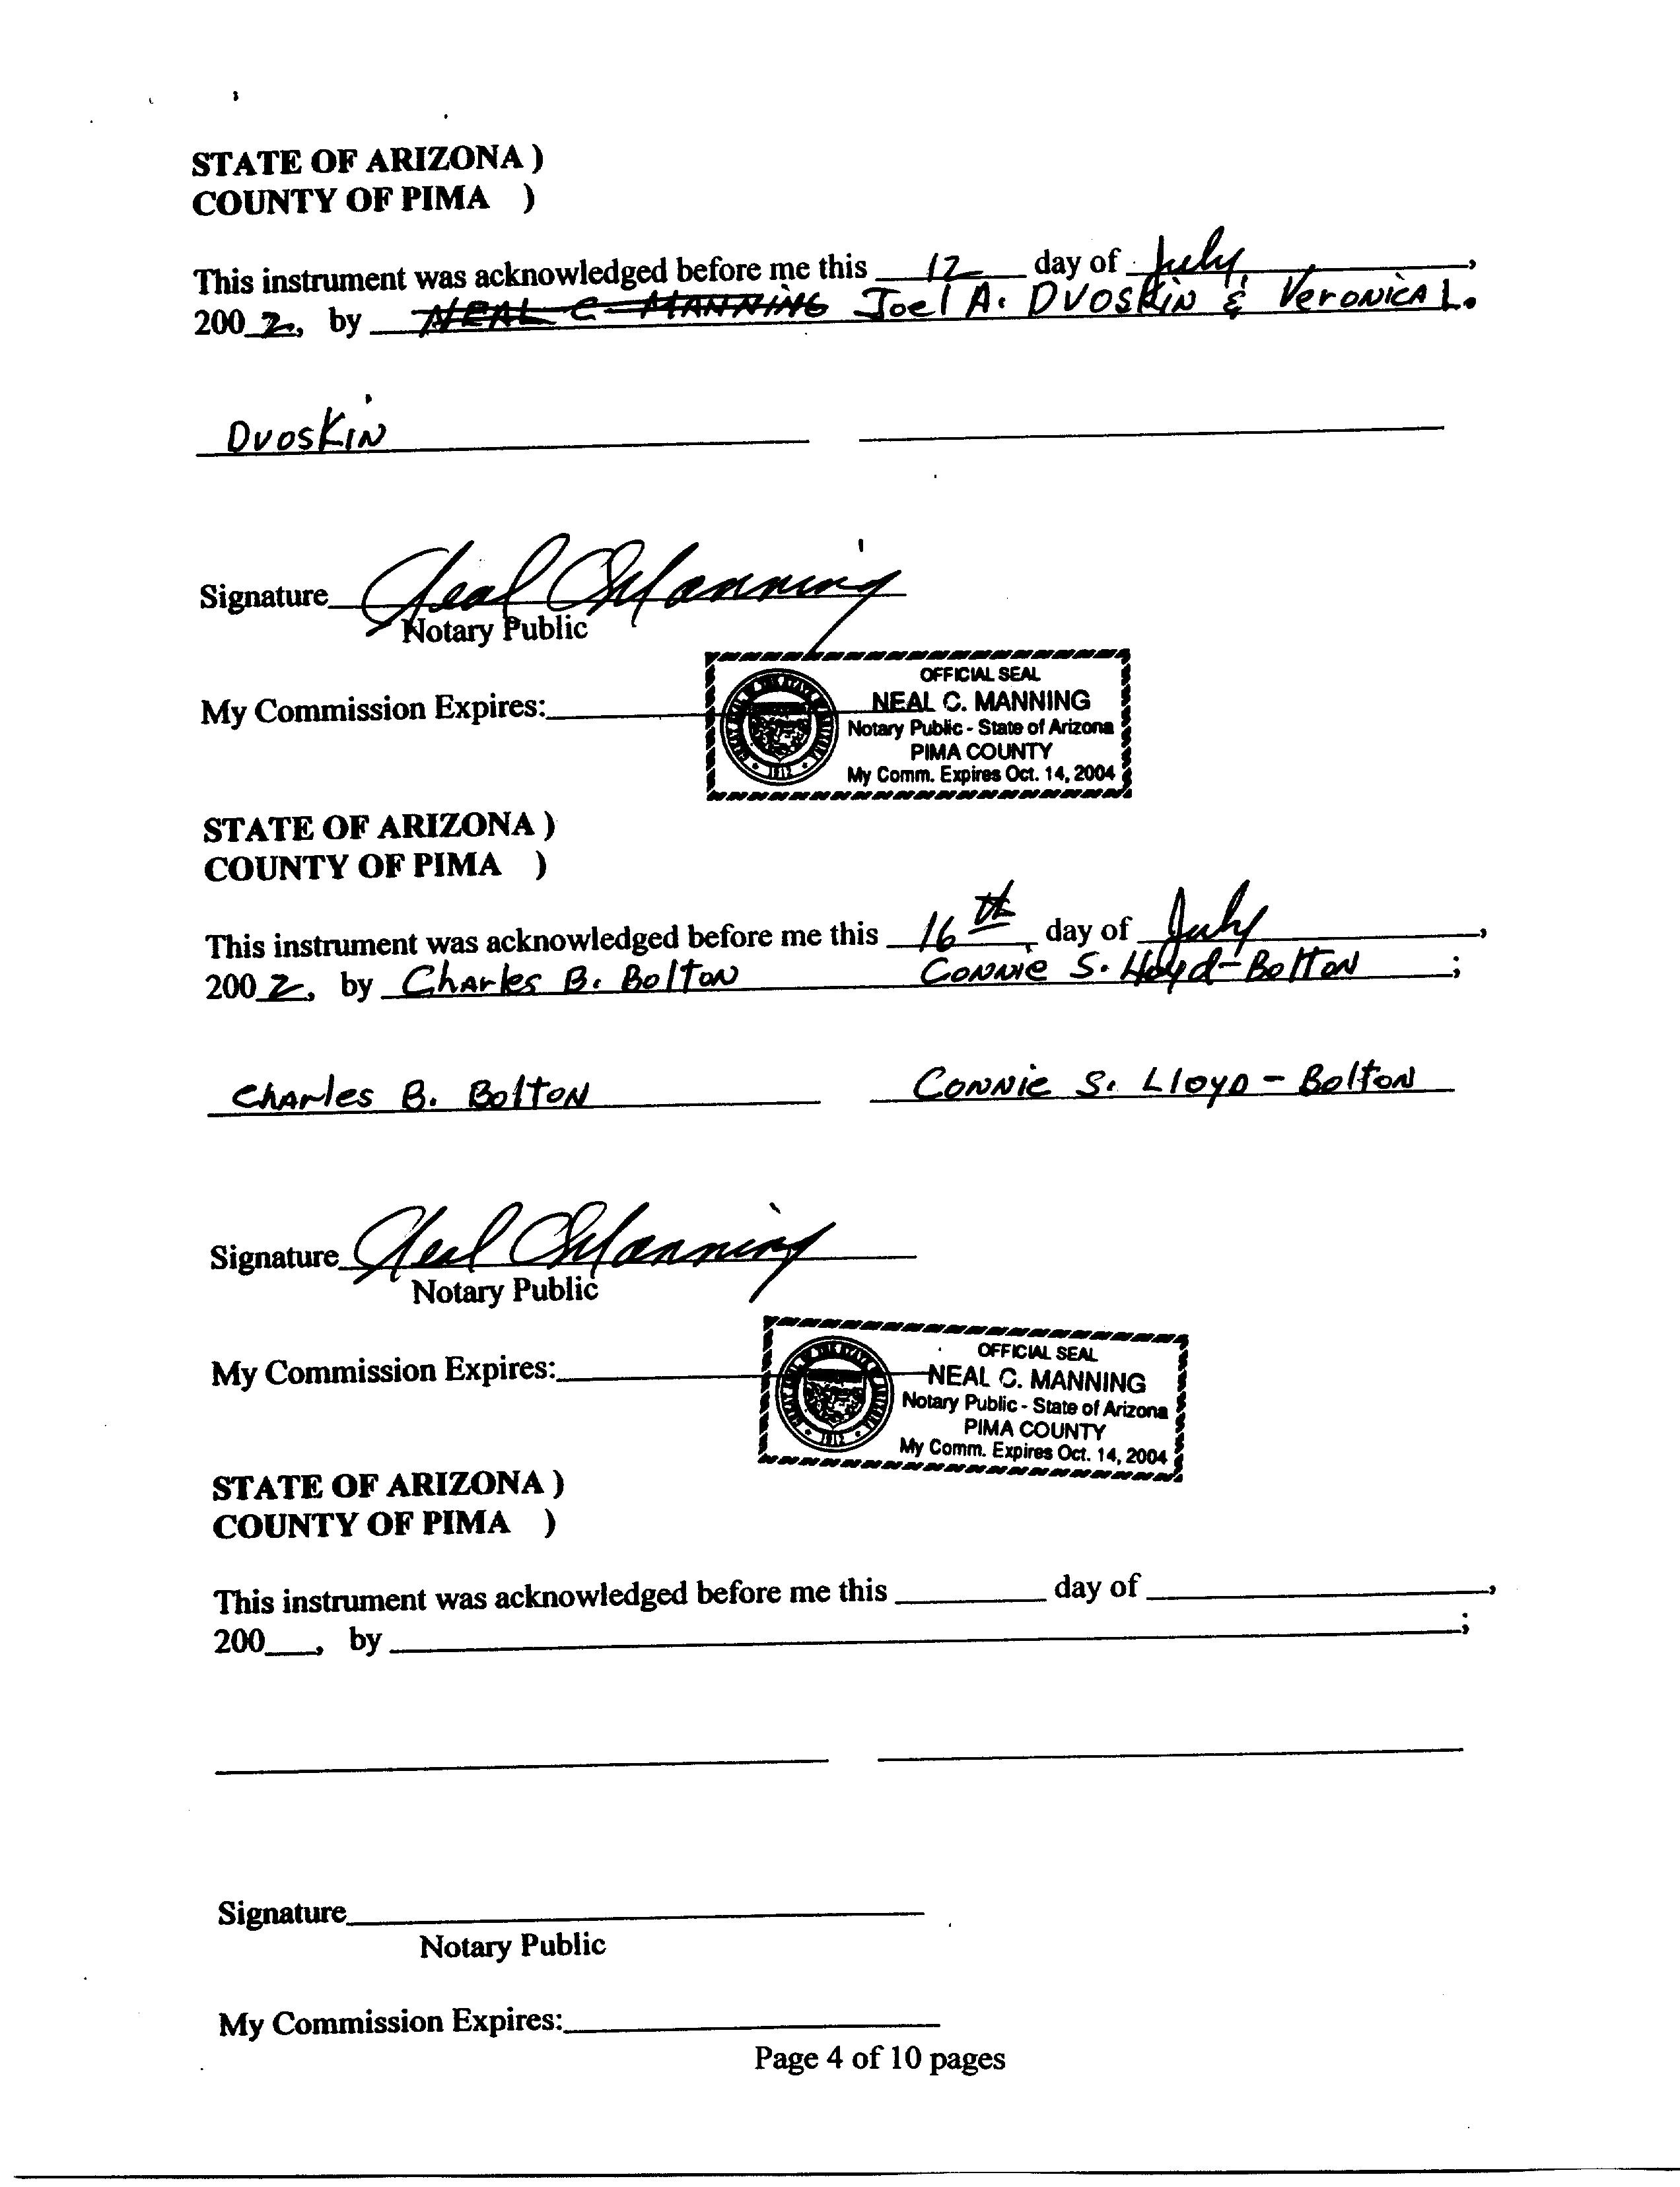 STATE OF ARIZONA )
COUNTY OF PIMA )
This instrument was acknowledged before me this 12 day of July,
2002, by NEAL C MANNING Joel A. Dvoskin & Veronica L.
Dvoskin
Signature Neal C Manning
Notary Public
My Commission Expires:
OFFICIAL SEAL
NEAL C. MANNING
Notary Public - State of Arizona
PIMA COUNTY
My Comm. Expires Oct. 14, 2004
STATE OF ARIZONA )
COUNTY OF PIMA )
This instrument was acknowledged before me this 16th day of July,
2002, by Charles B. Bolton Connie S. Lloyd-Bolton;
Charles B. Bolton Connie S. Lloyd-Bolton
Signature Neal C Manning
Notary Public
My Commission Expires:
OFFICIAL SEAL
NEAL C. MANNING
Notary Public - State of Arizona
PIMA COUNTY
My Comm. Expires Oct. 14, 2004
STATE OF ARIZONA )
COUNTY OF PIMA )
This instrument was acknowledged before me this ____ day of ____,
200__, by ____;
Signature
Notary Public
My Commission Expires:
Page 4 of 10 pages